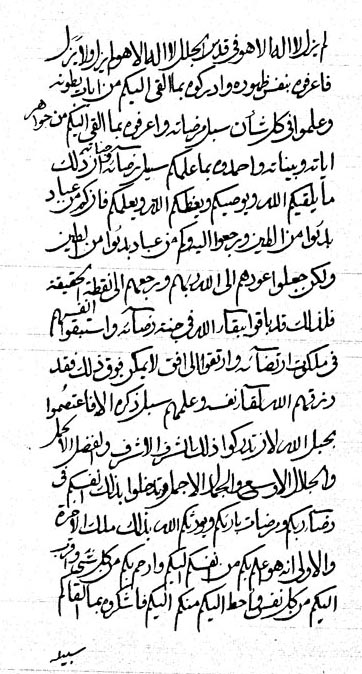 لم يزل لا اله الا هو في قدس الجلال لا اله الا هو لم يزل ولا يزال
فاعرفوه بنفس ظهوره وادركوه بما القى اليكم من اياته
وعلموا في كل شأن سبل مرضاته واعرفوه بما القى اليكم من جواهر
اياته وبيناته واحمدوه بما علمكم سبل رضائه وان ذلك
ما يلقيكم الله ويوصيكم ويعظكم الله ويعلمكم فاذ كم من عباد
بدئوا من الطين ورجعوا اليه وكم من عباد بدئوا من الطين
ولكن جعلوا عودهم الى الله ربهم ورجعهم الى النقطة الحقيقة
فلذلك قد باقوا ببقاء الله في جنة رضائه واستبقوا انفسهم
في ملكوت ارتضائه وارتقوا الى افق لا يمكن فوق ذلك فقد
رزقهم الله لقاء نفسه وعلمهم سبل ذكره الا فاعتصموا
بحبل الله لان تدركوا ذلك الشرف الاشرف والفضل الاجل
والجلال الارفع والجمال الاجمل وتدخلوا بذلك انفسكم في
رضاء ربكم ومرضات بارئكم ويؤتكم الله بذلك ملك الاخرة
والاولى انه هو عليم بكم من انفسكم اليكم وارحم بكم من كل شيء واقرب
اليكم من كل نفس احط اليكم منكم اليكم فاشكروه بما القاكم
سبيله